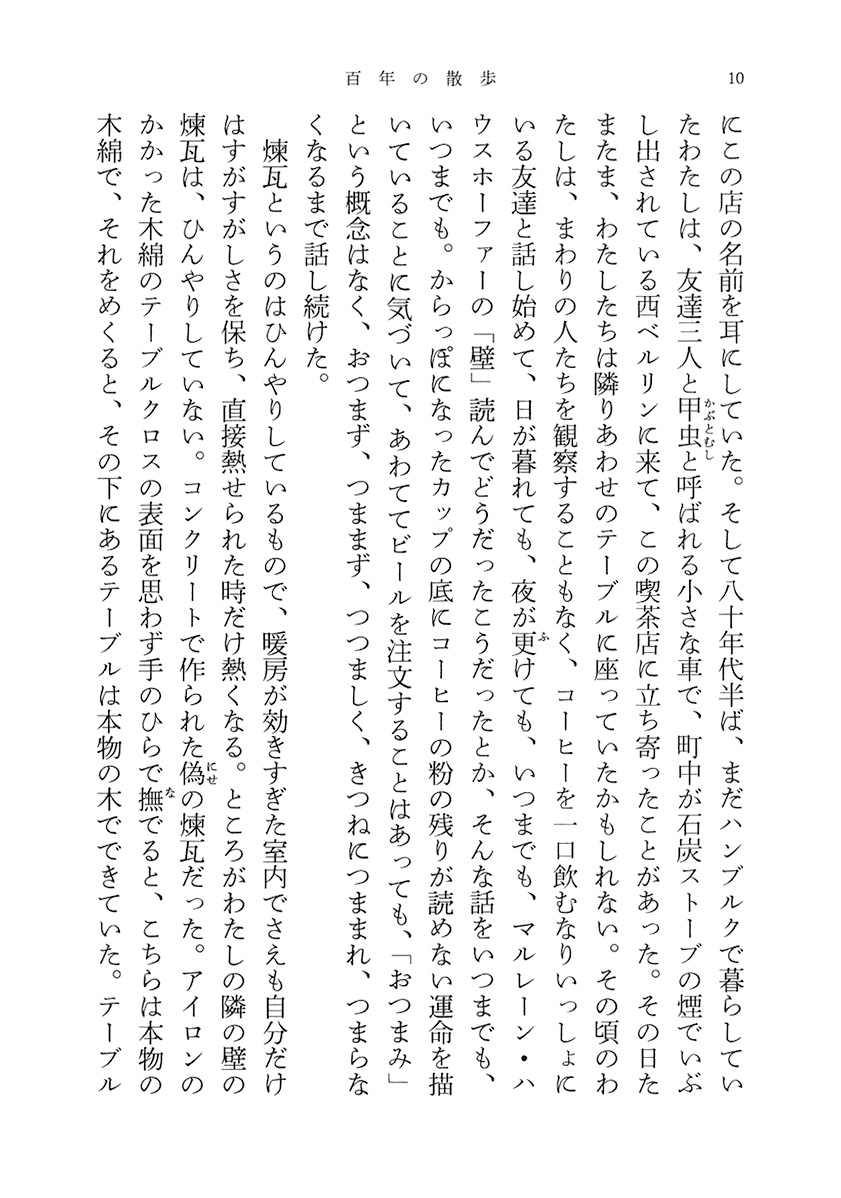 百年の散歩
10
にこの店の名前を耳にしていた。そして八十年代半ば、まだハンブルクで暮らしてい
たわたしは、友達三人と甲虫と呼ばれる小さな車で、町中が石炭ストーブの煙でいぶ
かぶとむし
し出されている西ベルリンに来て、この喫茶店に立ち寄ったことがあった。その日た
またま、わたしたちは隣りあわせのテーブルに座っていたかもしれない。その頃のわ
たしは、まわりの人たちを観察することもなく、コーヒーを一口飲むなりいっしょに
いる友達と話し始めて、日が暮れても、夜が更けても、いつまでも、マルレーン・ハ
ふ
ウスホーファーの「壁」読んでどうだったこうだったとか、そんな話をいつまでも、
いつまでも。からっぽになったカップの底にコーヒーの粉の残りが読めない運命を描
いていることに気づいて、あわててビールを注文することはあっても、「おつまみ」
という概念はなく、おつまず、つままず、つつましく、きつねにつままれ、つまらな
くなるまで話し続けた。
煉瓦というのはひんやりしているもので、暖房が効きすぎた室内でさえも自分だけ
はすがすがしさを保ち、直接熱せられた時だけ熱くなる。ところがわたしの隣の壁の
煉瓦は、ひんやりしていない。コンクリートで作られた偽の煉瓦だった。アイロンの
にせ
かかった木綿のテーブルクロスの表面を思わず手のひらで撫でると、こちらは本物の
な
木綿で、それをめくると、その下にあるテーブルは本物の木でできていた。テーブル